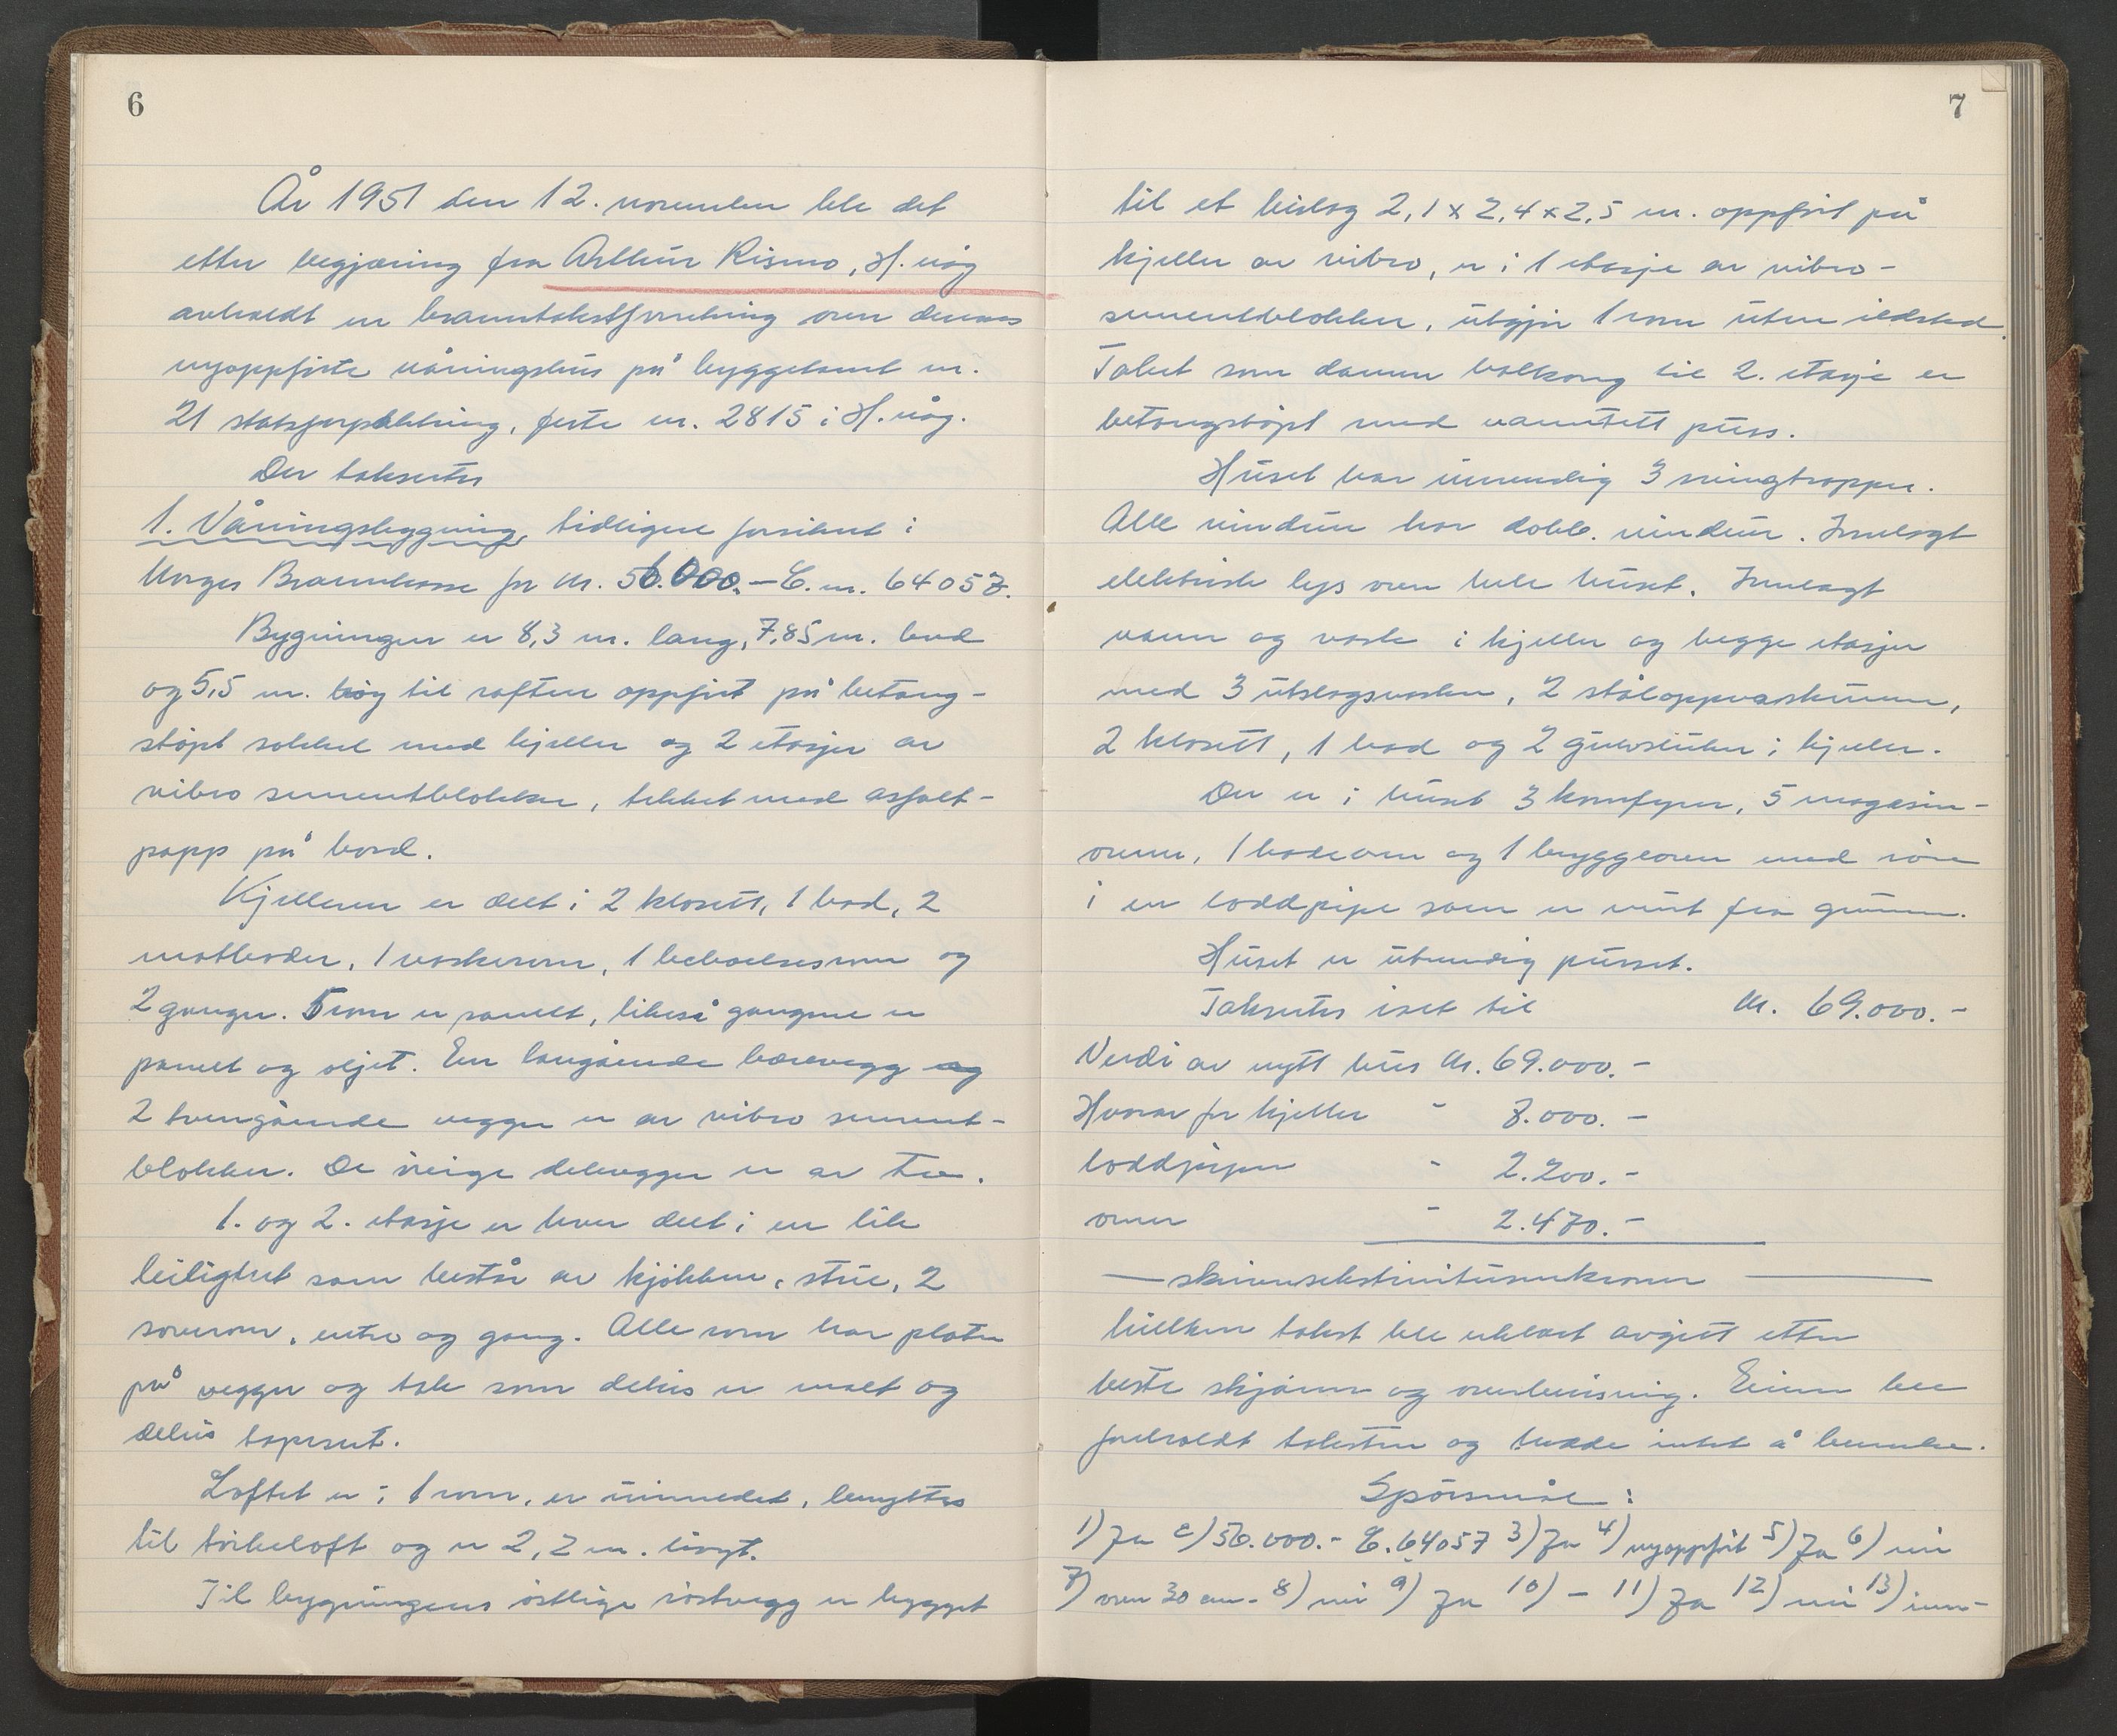 6
År 1951 den 12. november ble det
etter begjæring fra Arthur Rismo, H.våg
avholdt en branntakstforretning over dennes
nyoppførte våningshus på byggetomt nr.
21 statsforpaktning, feste nr. 2815 i H.våg.
Der taksertes
1. Våningsbygning, tidligere forsikret i
Norges Brannkasse for kr. 56.000.- L. nr. 64057.
Bygningen er 8,3 m. lang, 7,85 m. bred
og 5,5 m. høg til raften oppført på betong-
støpt sokkel med kjeller og 2 etasjer av
vibro sementblokker, tekket med asfalt-
papp på bord.
Kjelleren er delt i 2 klosett, 1 bad, 2
matboder, 1 vaskerom, 1 beboelsesrom og
2 ganger. 5 rom er panelt, likeså gangene er
panelt og oljet. En langående bærevegg og
2 tvergående vegger er av vibro sement-
blokker. De øvrige delevegger er av tre.
1. og 2. etasje er hver delt i en lik
leilighet som består av kjøkken, stue, 2
soverom, entre og gang. Alle rom har plater
på vegger og tak som delvis er malt og
delvis tapesert.
Loftet er i 1 rom, er uinnredet, benyttes
til tørkeloft og er 2,2 m. høgt.
Til bygningens østlige røstvegg er bygget
7
til et bislag 2,1 x 2,4 x 2,5 m. oppført på
kjeller av vibro, er i 1 etasje av vibro-
sementblokker, utgjør 1 rom uten ildsted.
Taket som danner balkong til 2. etasje er
betongstøpt med vanntett puss.
Huset har innvendig 3 svingtrapper.
Alle vinduer har dobb. vinduer. Innlagt
elektriske lys over hele huset. Innlagt
vann og vask i kjeller og begge etasjer
med 3 utslagsvasker, 2 ståloppvaskummer,
2 klosett, 1 bad og 2 gulvsluker i kjeller.
Der er i huset 3 komfyrer, 5 magasin-
ovner, 1 badeovn og 1 bryggeovn med rør
i en loddpipe som er murt fra grunnen.
Huset er utvendig pusset.
Taksertes iset til kr. 69.000.-
Verdi av nytt hus kr. 69.000.-
Hvorav for kjeller " 7.000.-
loddpipen " 2.200.-
ovner " 2.470.-
hvilken takst ble erklært avgitt etter
beste skjønn og overbevisning. Eieren ble
foreholdt taksten og hadde intet å bemerke.
Spørsmål:
1) Ja 2) 56.000.- L. 64057 3) Ja 4) nyoppført 5) Ja 6) nei
7) over 30 cm. 8) nei 9) Ja 10) - 11) Ja 12) nei 13) inn-